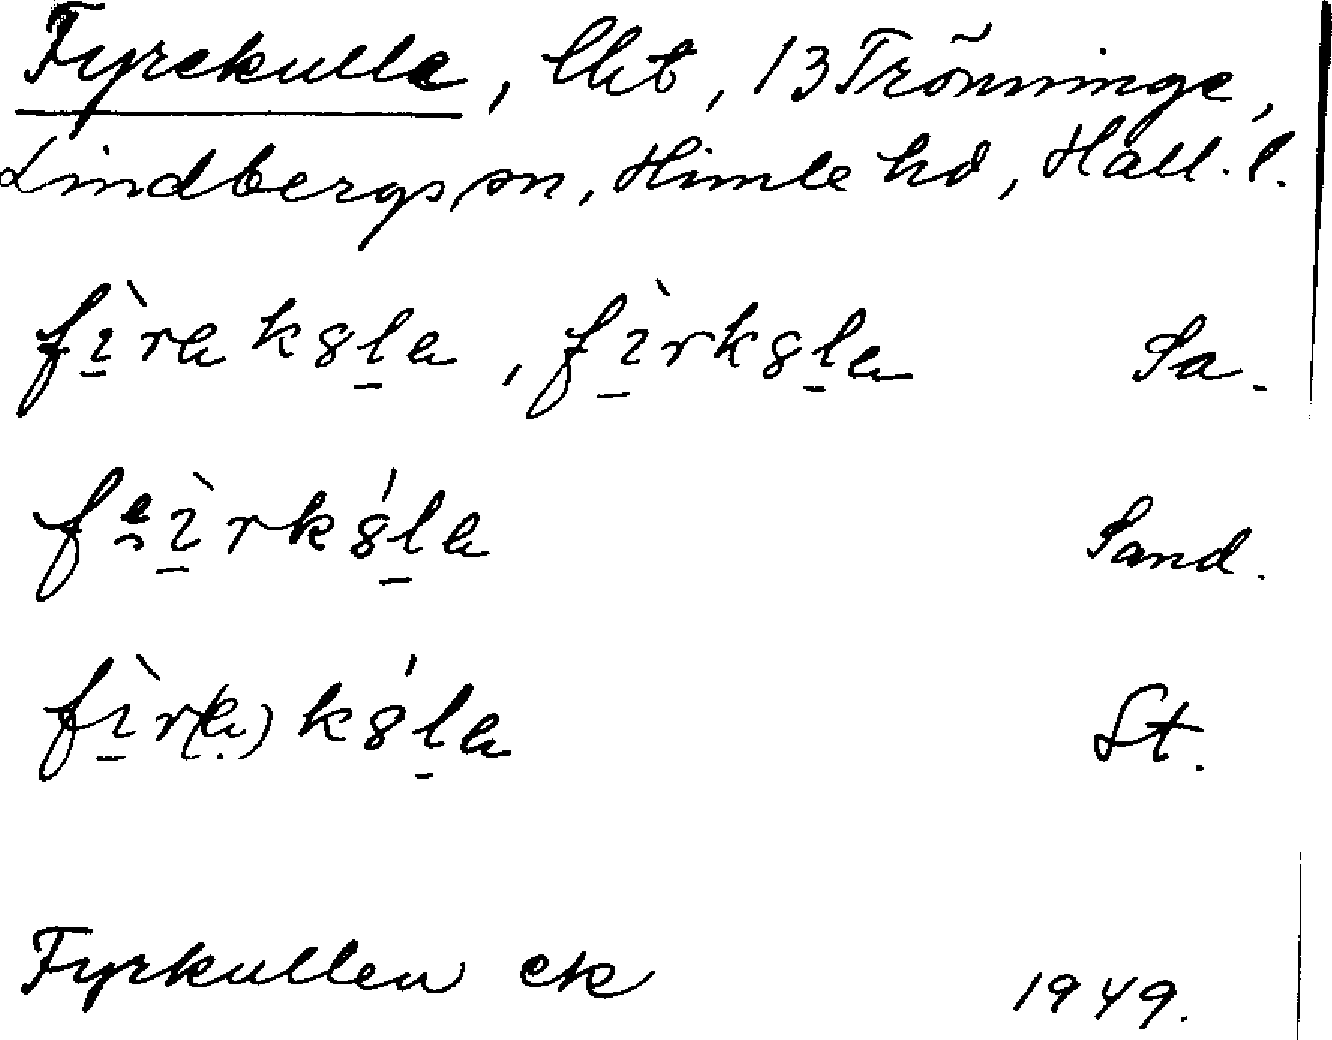 Fyrekulle, lht, 13 Trönninge,
Lindbergs sn, Himle hd, Hall. l.
fìrekȣle, fìrkȣle Sa.
Sand.
fìr(e)kȣ́le St.
Fyrkullen ek 1949.